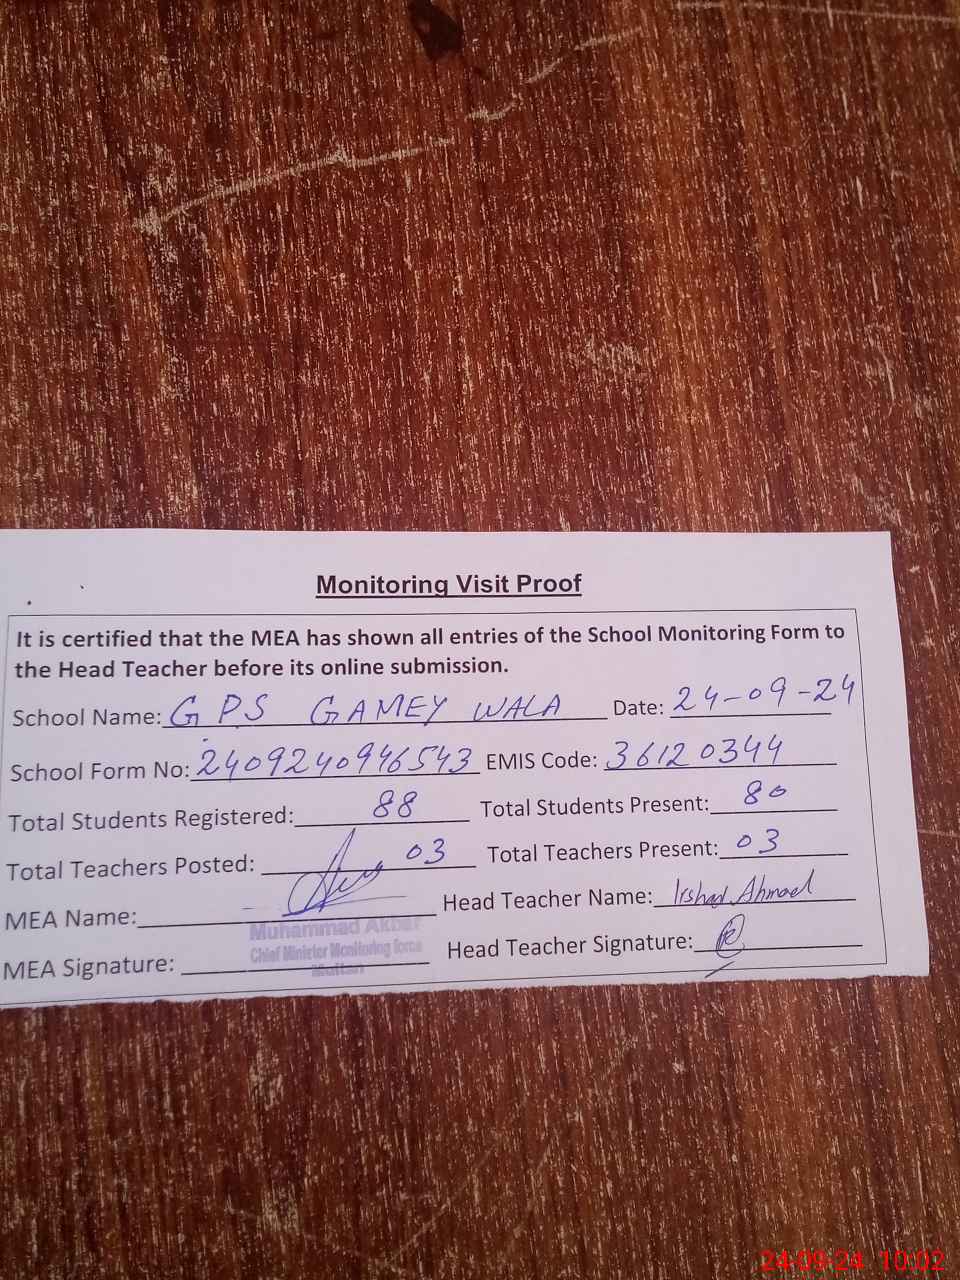 Monitoring Visit Proof
It is certified that the MEA has shown all entries of the School Monitoring Form to
the Head Teacher before its online submission.
School Name: GPS GAMEY WALA Date: 24-09-24
School Form No: 2409240946543 EMIS Code: 36120344
Total Students Registered: 88 Total Students Present: 80
Total Teachers Posted: 03 Total Teachers Present: 03
MEA Name: Head Teacher Name: Irshad Ahmad
Muhammad Akbar
Chief Minister Monitoring force
Multan
MEA Signature: Head Teacher Signature:
24-09-24 10:02